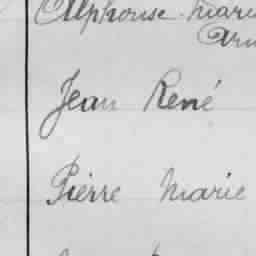 Alphonse Marie
Jean René
Pierre Marie